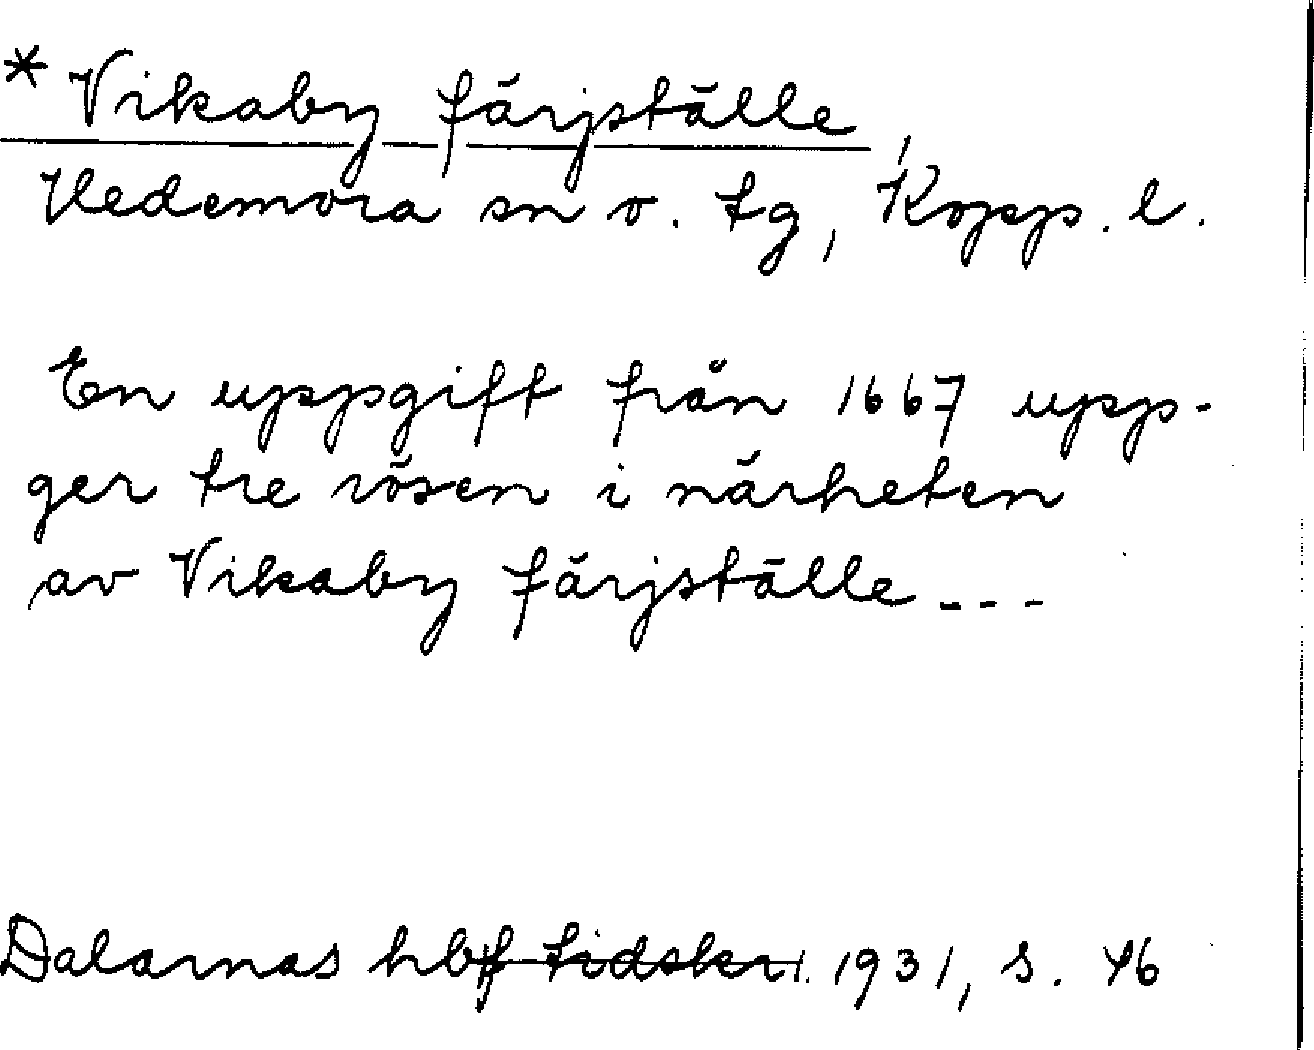 * Vikaby färjställe
Hedemora sn o. tg, Kopp. l.
En uppgift från 1667 upp-
ger tre rösen i närheten
av Vikaby färjställe ---
Dalarnas hbf tidskr. 1931, s. 46